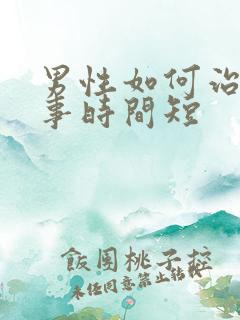 男性如何治
事時間短
飯團桃子控
未任同意禁止轉載